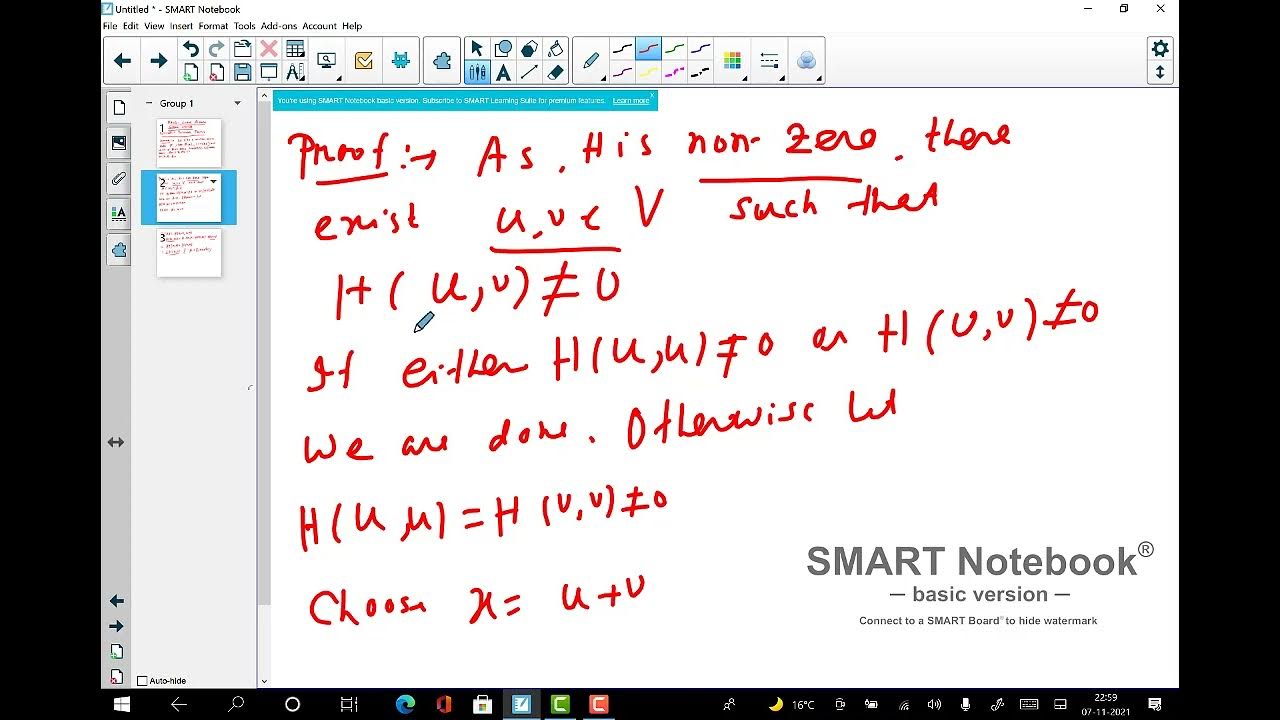 Untitled * - SMART Notebook
File Edit View Insert Format Tools Add-ons Account Help
Group 1
You're using SMART Notebook basic version. Subscribe to SMART Learning Suite for premium features. Learn more x
Proof :→ As, H is non-zero, there
exist u, v ∈ V such that
H(u,v) ≠ 0
If either H(u,u) ≠ 0 or H(v,v) ≠ 0
We are done. Otherwise let
H(u,u) = H(v,v) ≠ 0
Choose x = u+v
SMART Notebook®
— basic version —
Connect to a SMART Board® to hide watermark
1
2
3
Auto-hide
16°C
22:59
07-11-2021